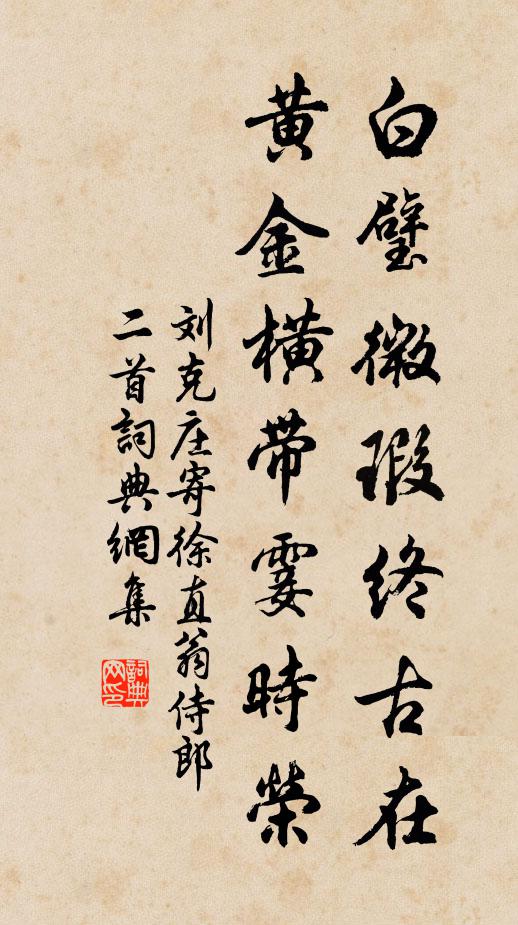 白璧微瑕终古在
黄金橫带霎時榮
刘克庄寄徐直翁侍郎
二首詞典網集
詞典网印